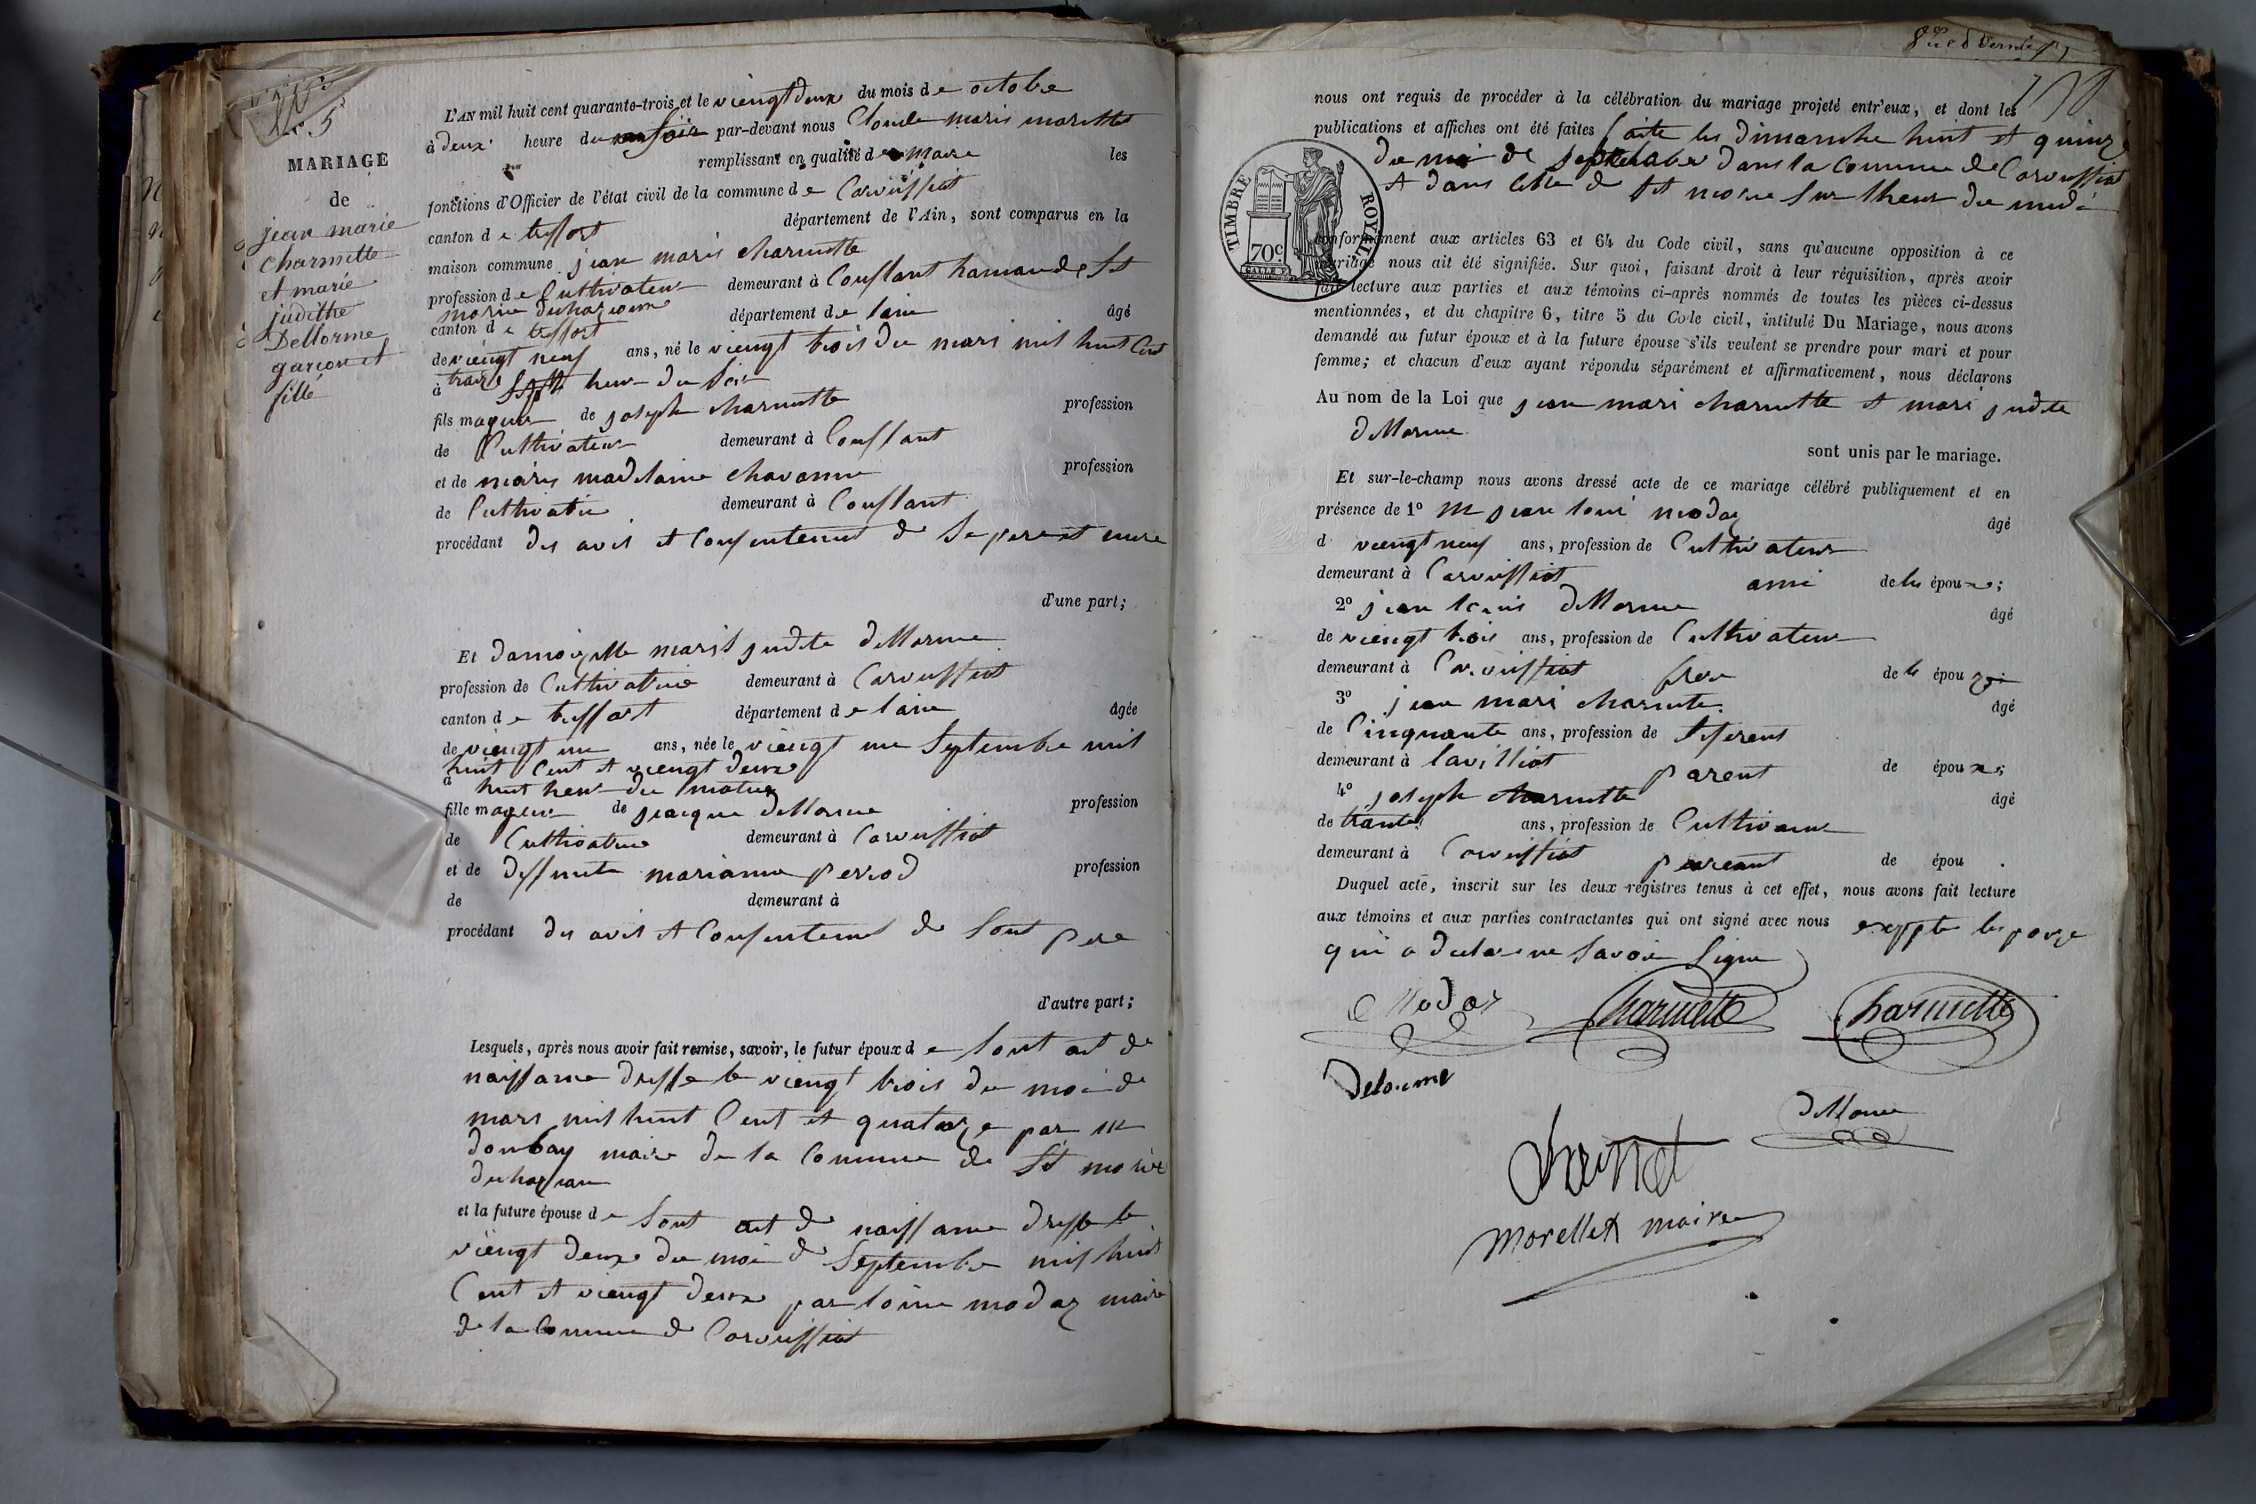 N° 5
MARIAGE
de
jean marie
Charmette
et marié
judithe
Dellorme
garçon et
fillé
L'AN mil huit cent quarante-trois et le viengt deux du mois de octobre
à deux heure du soir par-devant nous Claude marie morellet
remplissant en qualité de maire les
fonctions d'Officier de l'état civil de la commune de Corveissiat
canton de treffort département de l'Ain, sont comparus en la
maison commune jean marie charmette
profession de Cultivateur demeurant à Conflant hamaud de St
canton de treffort département de lain âgé
de viengt neuf ans, né le viengt trois du mars mil huit Cent
à sept heur du soir
fils mageur de joseph charmette profession
de Cultivateur demeurant à Conflant
et de marie madelaine chavanne profession
de Cultivatrice demeurant à Conflant
procédant des avis et Consentement de Se pere et mere
d'une part;
Et damoiselle marie judite dellorme
profession de Cultivatrice demeurant à Corveissiat
canton de treffort département de lain âgée
de viengt un ans, née le viengt un Septembre mil
huit Cent et viengt deux
à huit heur du matin
fille mageur de jacque dellorme profession
de Cultivateur demeurant à Corveissiat
et de deffunte marianne perrod profession
de demeurant à
procédant des avis et Consentement de Sont pere
d'autre part;
Lesquels, après nous avoir fait remise, savoir, le futur époux de Sont act de
naissance dresse le viengt trois du moi de
mars mil huit Cent et quatorze par m
dombay maire de la Commune de St morice
et la future épouse de Sont act de naissance dresse le
viengt deux du moi de Septembre mil huit
Cent et viengt deux par modaz maire
de la Commune de Corveissiat
nous ont requis de procéder à la célébration du mariage projeté entr'eux, et dont les
publications et affiches ont été faites faite les dimanche huit et quinze
du moi de septembre dans la Commune de Corveissiat
et dans celle de St morice sur lheur du midi
TIMBRE ROYAL
70c
conformément aux articles 63 et 64 du Code civil, sans qu'aucune opposition à ce
mariage nous ait été signifiée. Sur quoi, faisant droit à leur réquisition, après avoir
fait lecture aux parties et aux témoins ci-après nommés de toutes les pièces ci-dessus
mentionnées, et du chapitre 6, titre 5 du Code civil, intitulé Du Mariage, nous avons
demandé au futur époux et à la future épouse s'ils veulent se prendre pour mari et pour
femme; et chacun d'eux ayant répondu séparément et affirmativement, nous déclarons
Au nom de la Loi que jean mari charmette et mari judite
dellorme
sont unis par le mariage.
Et sur-le-champ nous avons dressé acte de ce mariage célébré publiquement et en
présence de 1° m jean loui modaz âgé
d viengt neuf ans, profession de Cultivateur
demeurant à Corveissiat ami de les époux;
2° jean louis dellorme âgé
de viengt trois ans, profession de Cultivateur
demeurant à Corveissiat frere de le épou
3° jean mari charmette âgé
de Cinquante ans, profession de
demeurant à lavilliat parent de époux;
4° joseph charmette âgé
de trante ans, profession de Cultivateur
demeurant à Corveissiat pareant de épou .
Duquel acte, inscrit sur les deux registres tenus à cet effet, nous avons fait lecture
aux témoins et aux parties contractantes qui ont signé avec nous exeppte lespouze
qui a declare ne Savoir Signe
Modaz Charmette Charmette
Delorme
dellorme
Morellet maire